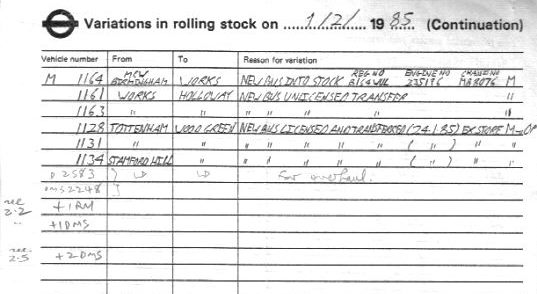 Variations in rolling stock on 1/2/ 19 85 (Continuation)
Vehicle number From To Reason for variation
M 1164 MCW BIRMINGHAM WORKS NEW BUS INTO STOCK REG NO B164WUL ENGINE NO 235196 CHASSIS NO MA8076 M
1161 WORKS HOLLOWAY NEW BUS UNLICENSED TRANSFER "
1163 " " " "
1128 TOTTENHAM WOOD GREEN NEW BUS LICENSED AND TRANSFERRED (24.1.85) EX STORE M-OP
1131 " " " " " " " ( " ) " "
1134 STAMFORD HILL " " " " " " ( " ) " "
D 2583 } for overhaul.
DMS 2248 }
see 2.2 + 1 RM
" + 1 DMS
see 2.5 + 2 DMS